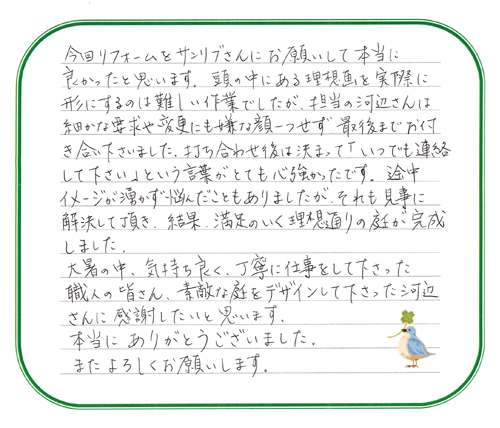 今回リフォームをサンリブさんにお願いして本当に
良かったと思います。頭の中にある理想画を実際に
形にするのは難しい作業でしたが、担当の河辺さんは
細かな要求や変更にも嫌な顔一つせず最後までお付
き合い下さいました。打ち合わせ後は決まって「いつでも連絡
して下さい」という言葉がとても心強かったです。途中
イメージが湧かず悩んだこともありましたが、それも見事に
解決して頂き、結果、満足のいく理想通りの庭が完成
しました。
大暑の中、気持ち良く、丁寧に仕事をして下さった
職人の皆さん、素敵な庭をデザインして下さった河辺
さんに感謝したいと思います。
本当にありがとうございました。
またよろしくお願いします。